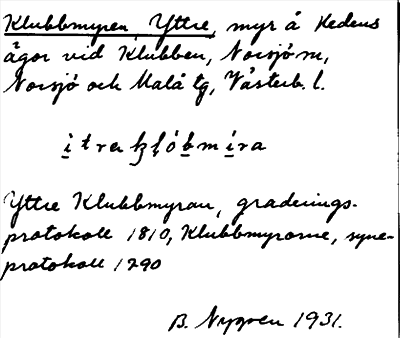 Klubbmyren, Yttre, myr å Hedens
ägor vid Klubben, Norsjö sn,
Norsjö och Malå tg, Västerb. l.
Yttre Klubbmyran, graderings-
protokoll 1810, Klubbmyrorne, syne-
protokoll 1790
B. Nygren 1931.